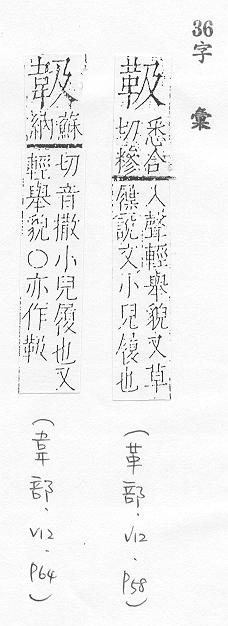 36
字彙
靸
悉合
切糝
入聲輕舉貌又草
屧說文小兒履也
(革部.V12.P58)
䪚
蘇
納
切音撒小兒履也又
輕舉貌○亦作靸
(韋部.V12.P64)